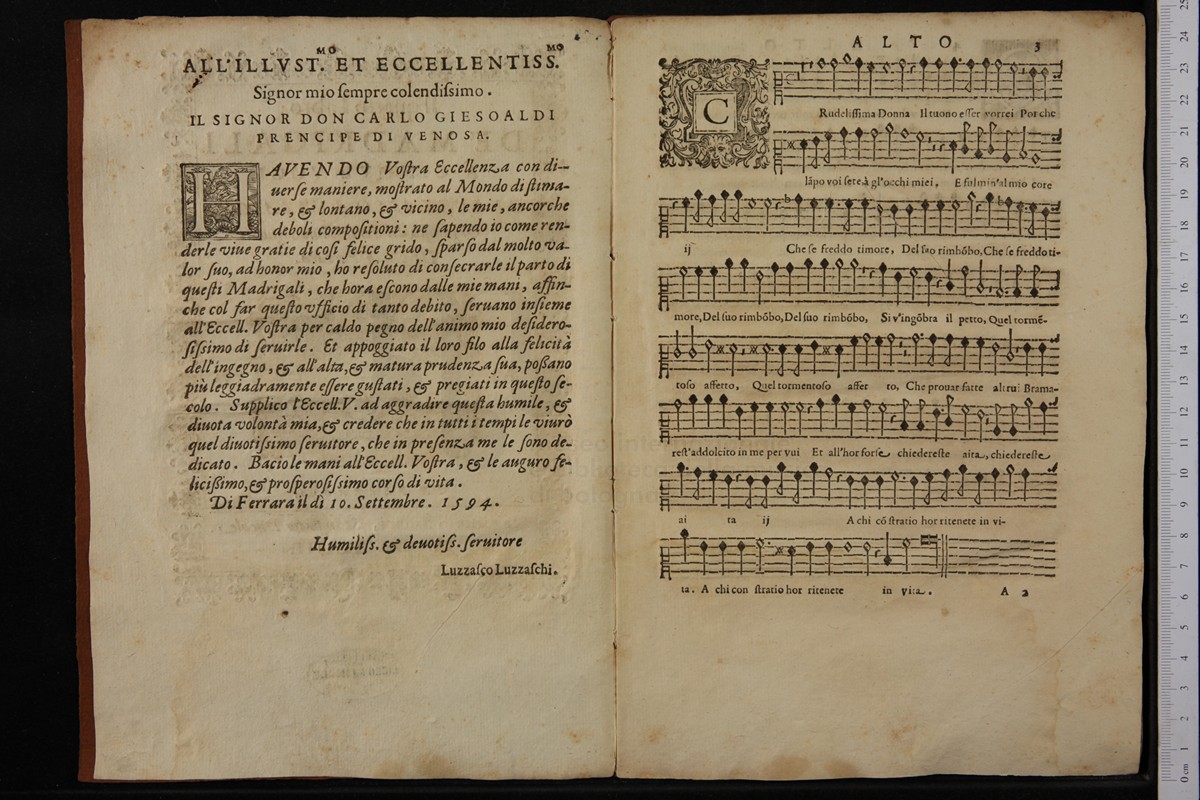 ALL'ILLVST.MO ET ECCELLENTISS.MO
Signor mio ſempre colendiſsimo.
IL SIGNOR DON CARLO GIESOALDI
PRENCIPE DI VENOSA.
HAVENDO Voſtra Eccellenza con di-
uerſe maniere, moſtrato al Mondo di ſtima-
re, & lontano, & vicino, le mie, ancorche
deboli compoſitioni: ne ſapendo io come ren-
derle viue gratie di coſi felice grido, ſparſo dal molto va-
lor ſuo, ad honor mio, ho reſoluto di conſecrarle il parto di
queſti Madrigali, che hora eſcono dalle mie mani, affin-
che col far queſto vfficio di tanto debito, ſeruano inſieme
all'Eccell. Voſtra per caldo pegno dell'animo mio deſidero-
ſiſsimo di ſeruirle. Et appoggiato il loro filo alla felicità
dell'ingegno, & all'alta, & matura prudenza ſua, poßano
più leggiadramente eſſere guſtati, & pregiati in queſto ſe-
colo. Supplico l'Eccell. V. ad aggradire queſta humile, &
diuota volontà mia, & credere che in tutti i tempi le viurò
quel diuotiſsimo ſeruittore, che in preſenza me le ſono de-
dicato. Bacio le mani all'Eccell. Voſtra, & le auguro fe-
liciſsimo, & proſperoſiſsimo corſo di vita.
Di Ferrara il dì 10. Settembre. 1594.
Humiliſs. & deuotiſs. ſeruitore
Luzzaſco Luzzaſchi.
ALTO 3
CRudeliſſima Donna Il tuono eſſer vorrei Por che
lāpo voi ſete à gl'occhi miei, E fulmin'al mio core
ij Che ſe freddo timore, Del ſuo rimbōbo, Che ſe freddo ti-
more, Del ſuo rimbōbo, Del ſuo rimbōbo, Si v'ingōbra il petto, Quel tormē-
toſo affetto, Quel tormentoſo affet to, Che prouar fatte altrui Brama-
reſt'addolcito in me per vui Et all'hor forſe chiedereſte aita, chiedereſte
ai ta ij A chi cō ſtratio hor ritenete in vi-
ta. A chi con ſtratio hor ritenete in vita. A 2